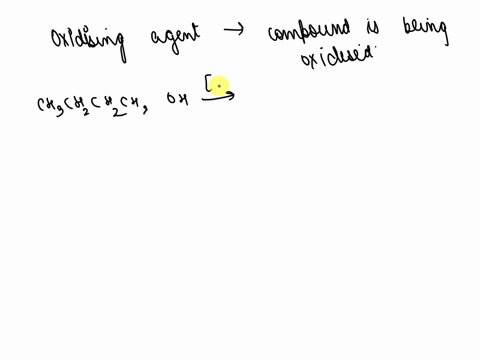 oxidising agent → compound is being
oxidised
CH3CH2CH2CH2 OH [